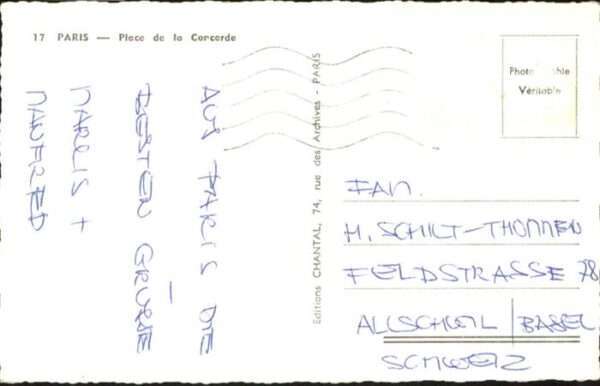 17 PARIS — Place de la Concorde
AUS PARIS DIE
BESTEN GRÜSSE
MARLIS +
MANFRED
Editions CHANTAL, 74, rue des Archives - PARIS
Photo
Véritable
FAM.
H. SCHILT-THOMMEN
FELDSTRASSE 78
ALLSCHWIL / BASEL
SCHWEIZ